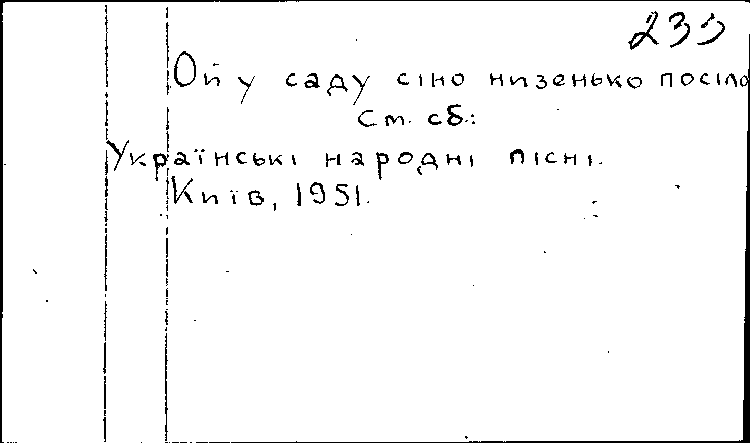 Ой у саду сіно низенько посіло
См. сб.:
Українські народні пісні.
Київ, 1951.